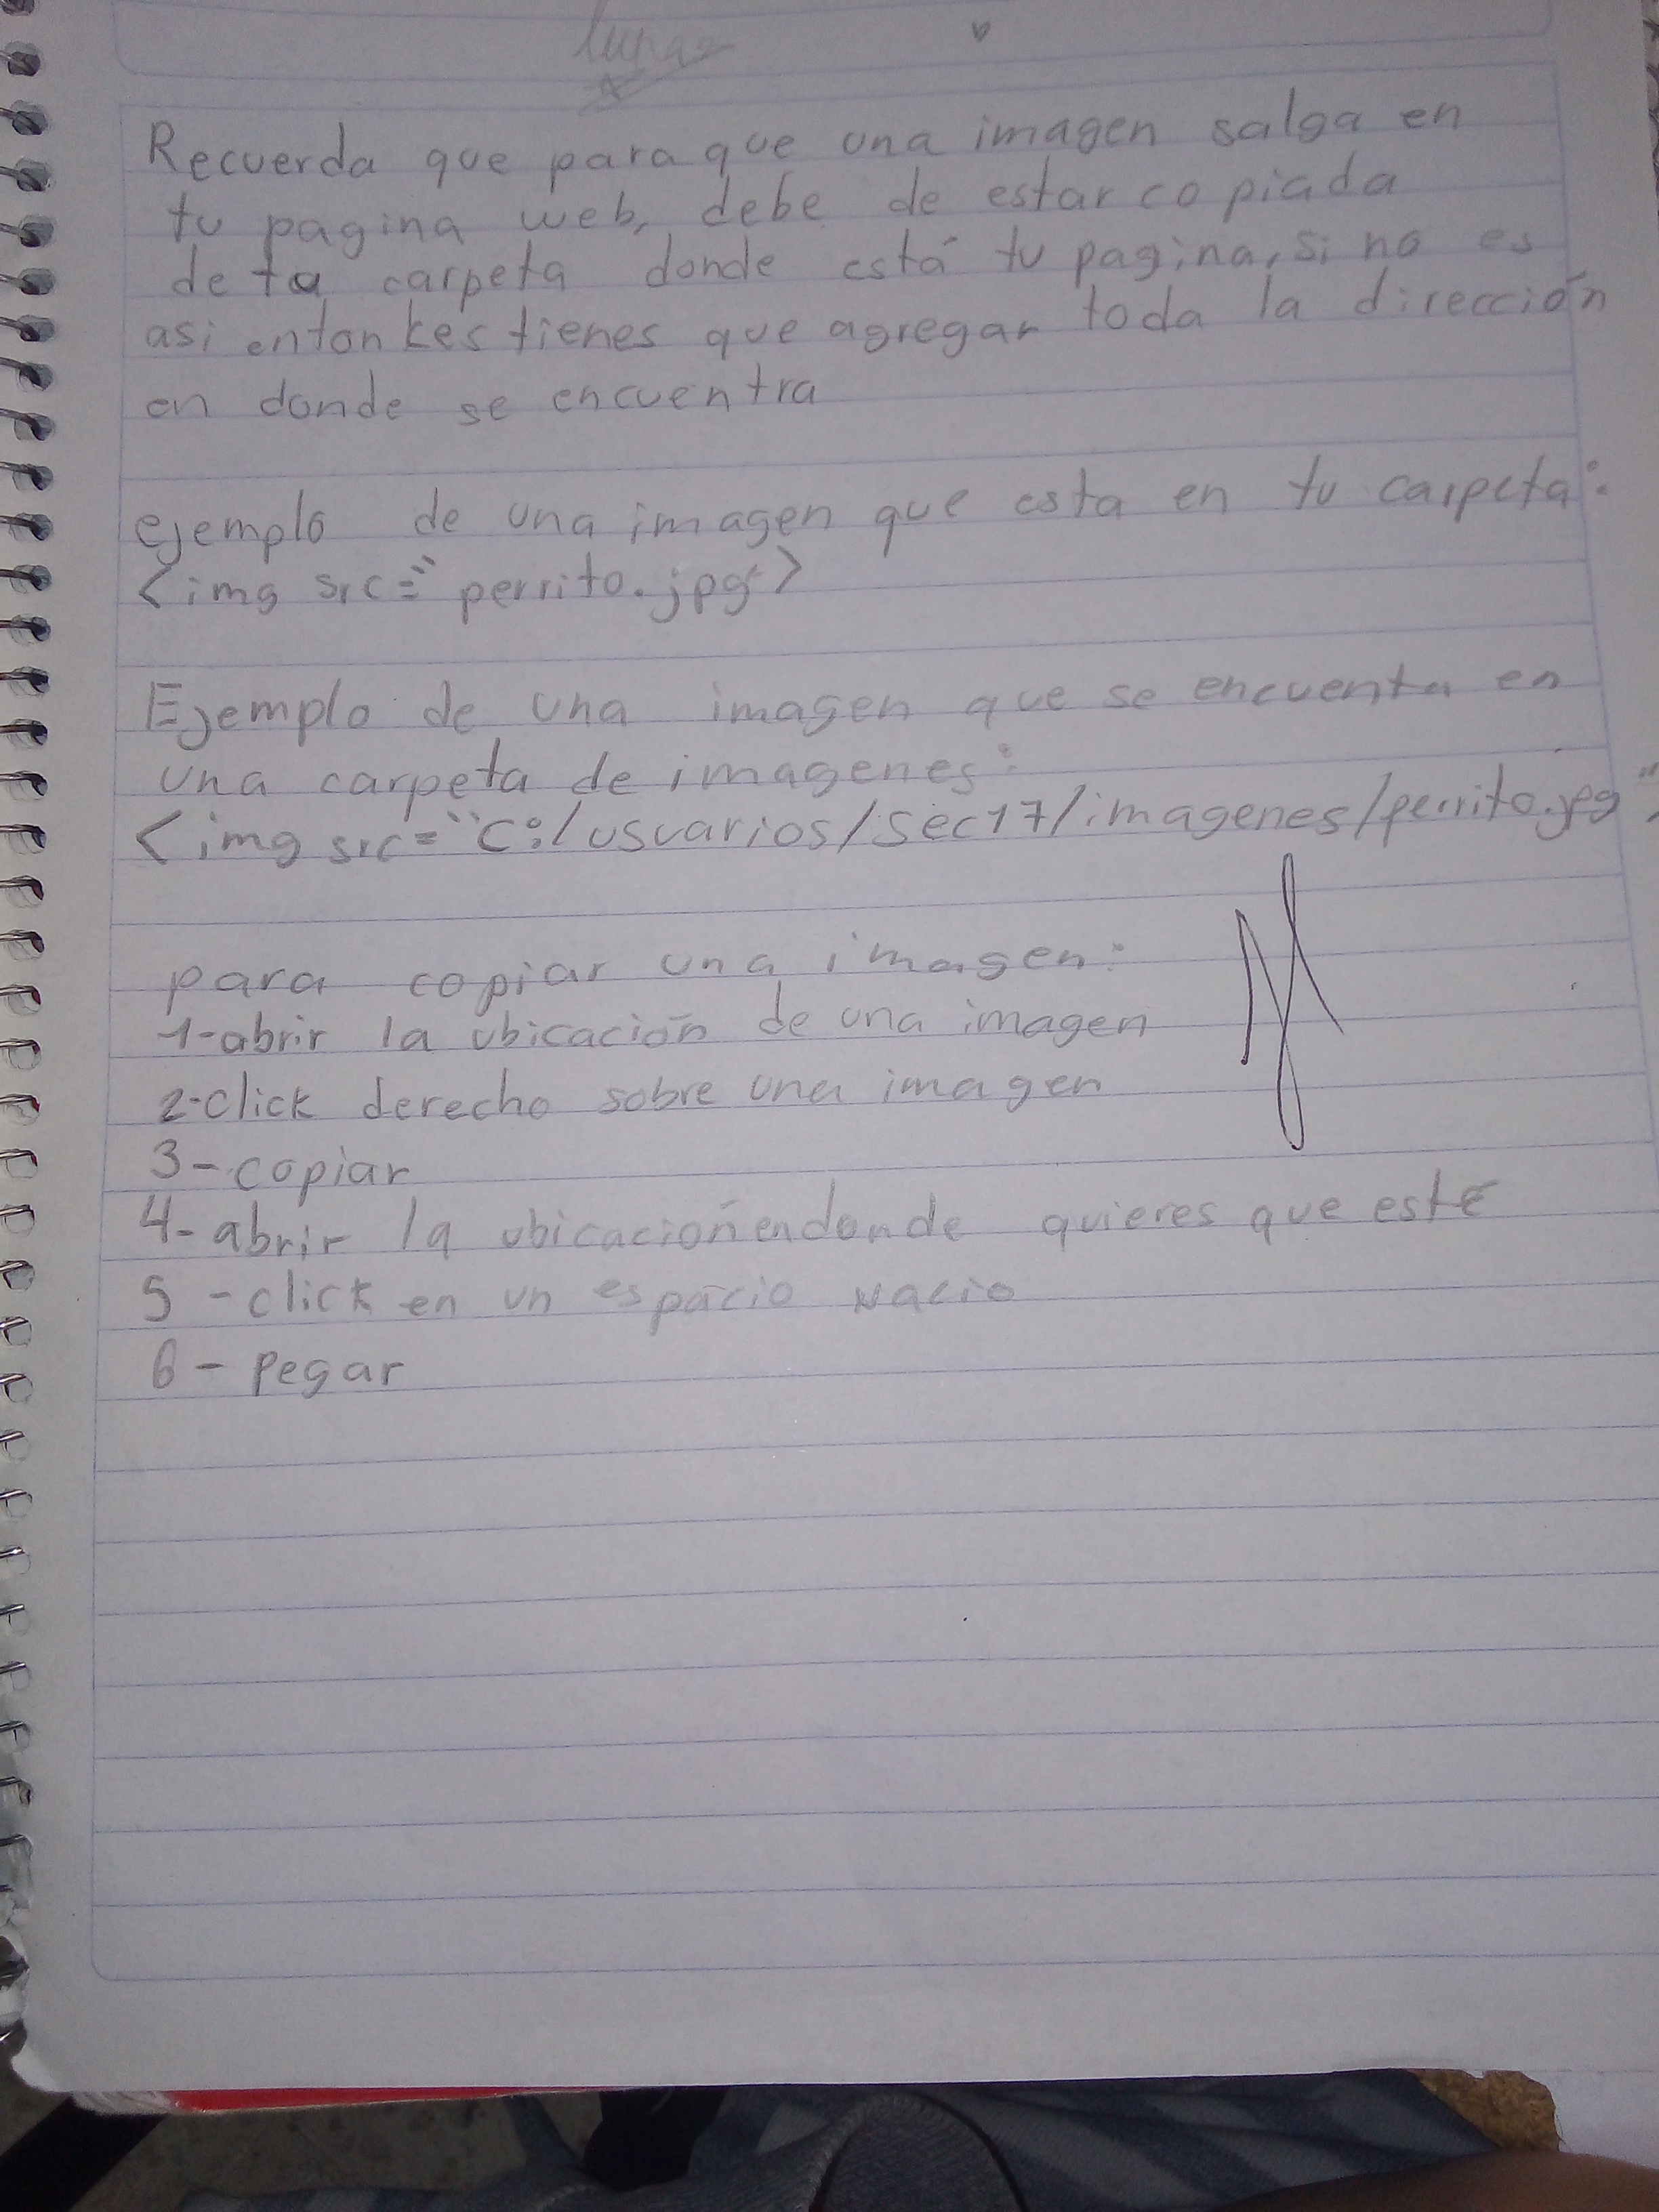 Recuerda que para que una imagen salga en
tu pagina web, debe de estar copiada
de ta carpeta donde está tu pagina, si no es
asi entonkes tienes que agregar toda la dirección
en donde se encuentra
ejemplo de una imagen que esta en tu carpeta:
<img src="perrito.jpg">
Ejemplo de una imagen que se encuenta en
una carpeta de imagenes:
<img src="C:/usuarios/sec17/imagenes/perrito.jpg">
para copiar una imagen:
1-abrir la ubicación de una imagen
2-click derecho sobre una imagen
3-copiar
4-abrir la ubicación endonde quieres que esté
5-click en un espacio vacio
6-pegar